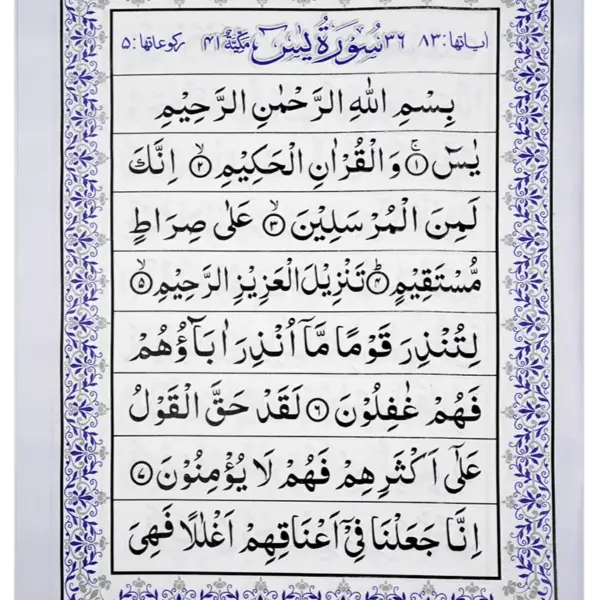 اٰیاتها: ۸۳ ۳۶ سُوْرَةُ یٰسٓ مَكِّيَّةٌ ۴۱ ركوعاتها: ۵
بِسْمِ اللّٰهِ الرَّحْمٰنِ الرَّحِيْمِ
يٰسٓ ۚ﴿۱﴾ وَالْقُرْاٰنِ الْحَكِيْمِ ۙ﴿۲﴾ اِنَّكَ
لَمِنَ الْمُرْسَلِيْنَ ۙ﴿۳﴾ عَلٰى صِرَاطٍ
مُّسْتَقِيْمٍ ؕ﴿۴﴾ تَنْزِيْلَ الْعَزِيْزِ الرَّحِيْمِ ۙ﴿۵﴾
لِتُنْذِرَ قَوْمًا مَّاۤ اُنْذِرَ اٰبَآؤُهُمْ
فَهُمْ غٰفِلُوْنَ ﴿۶﴾ لَقَدْ حَقَّ الْقَوْلُ
عَلٰۤى اَكْثَرِهِمْ فَهُمْ لَا يُؤْمِنُوْنَ ﴿۷﴾
اِنَّا جَعَلْنَا فِيْۤ اَعْنَاقِهِمْ اَغْلٰلًا فَهِيَ